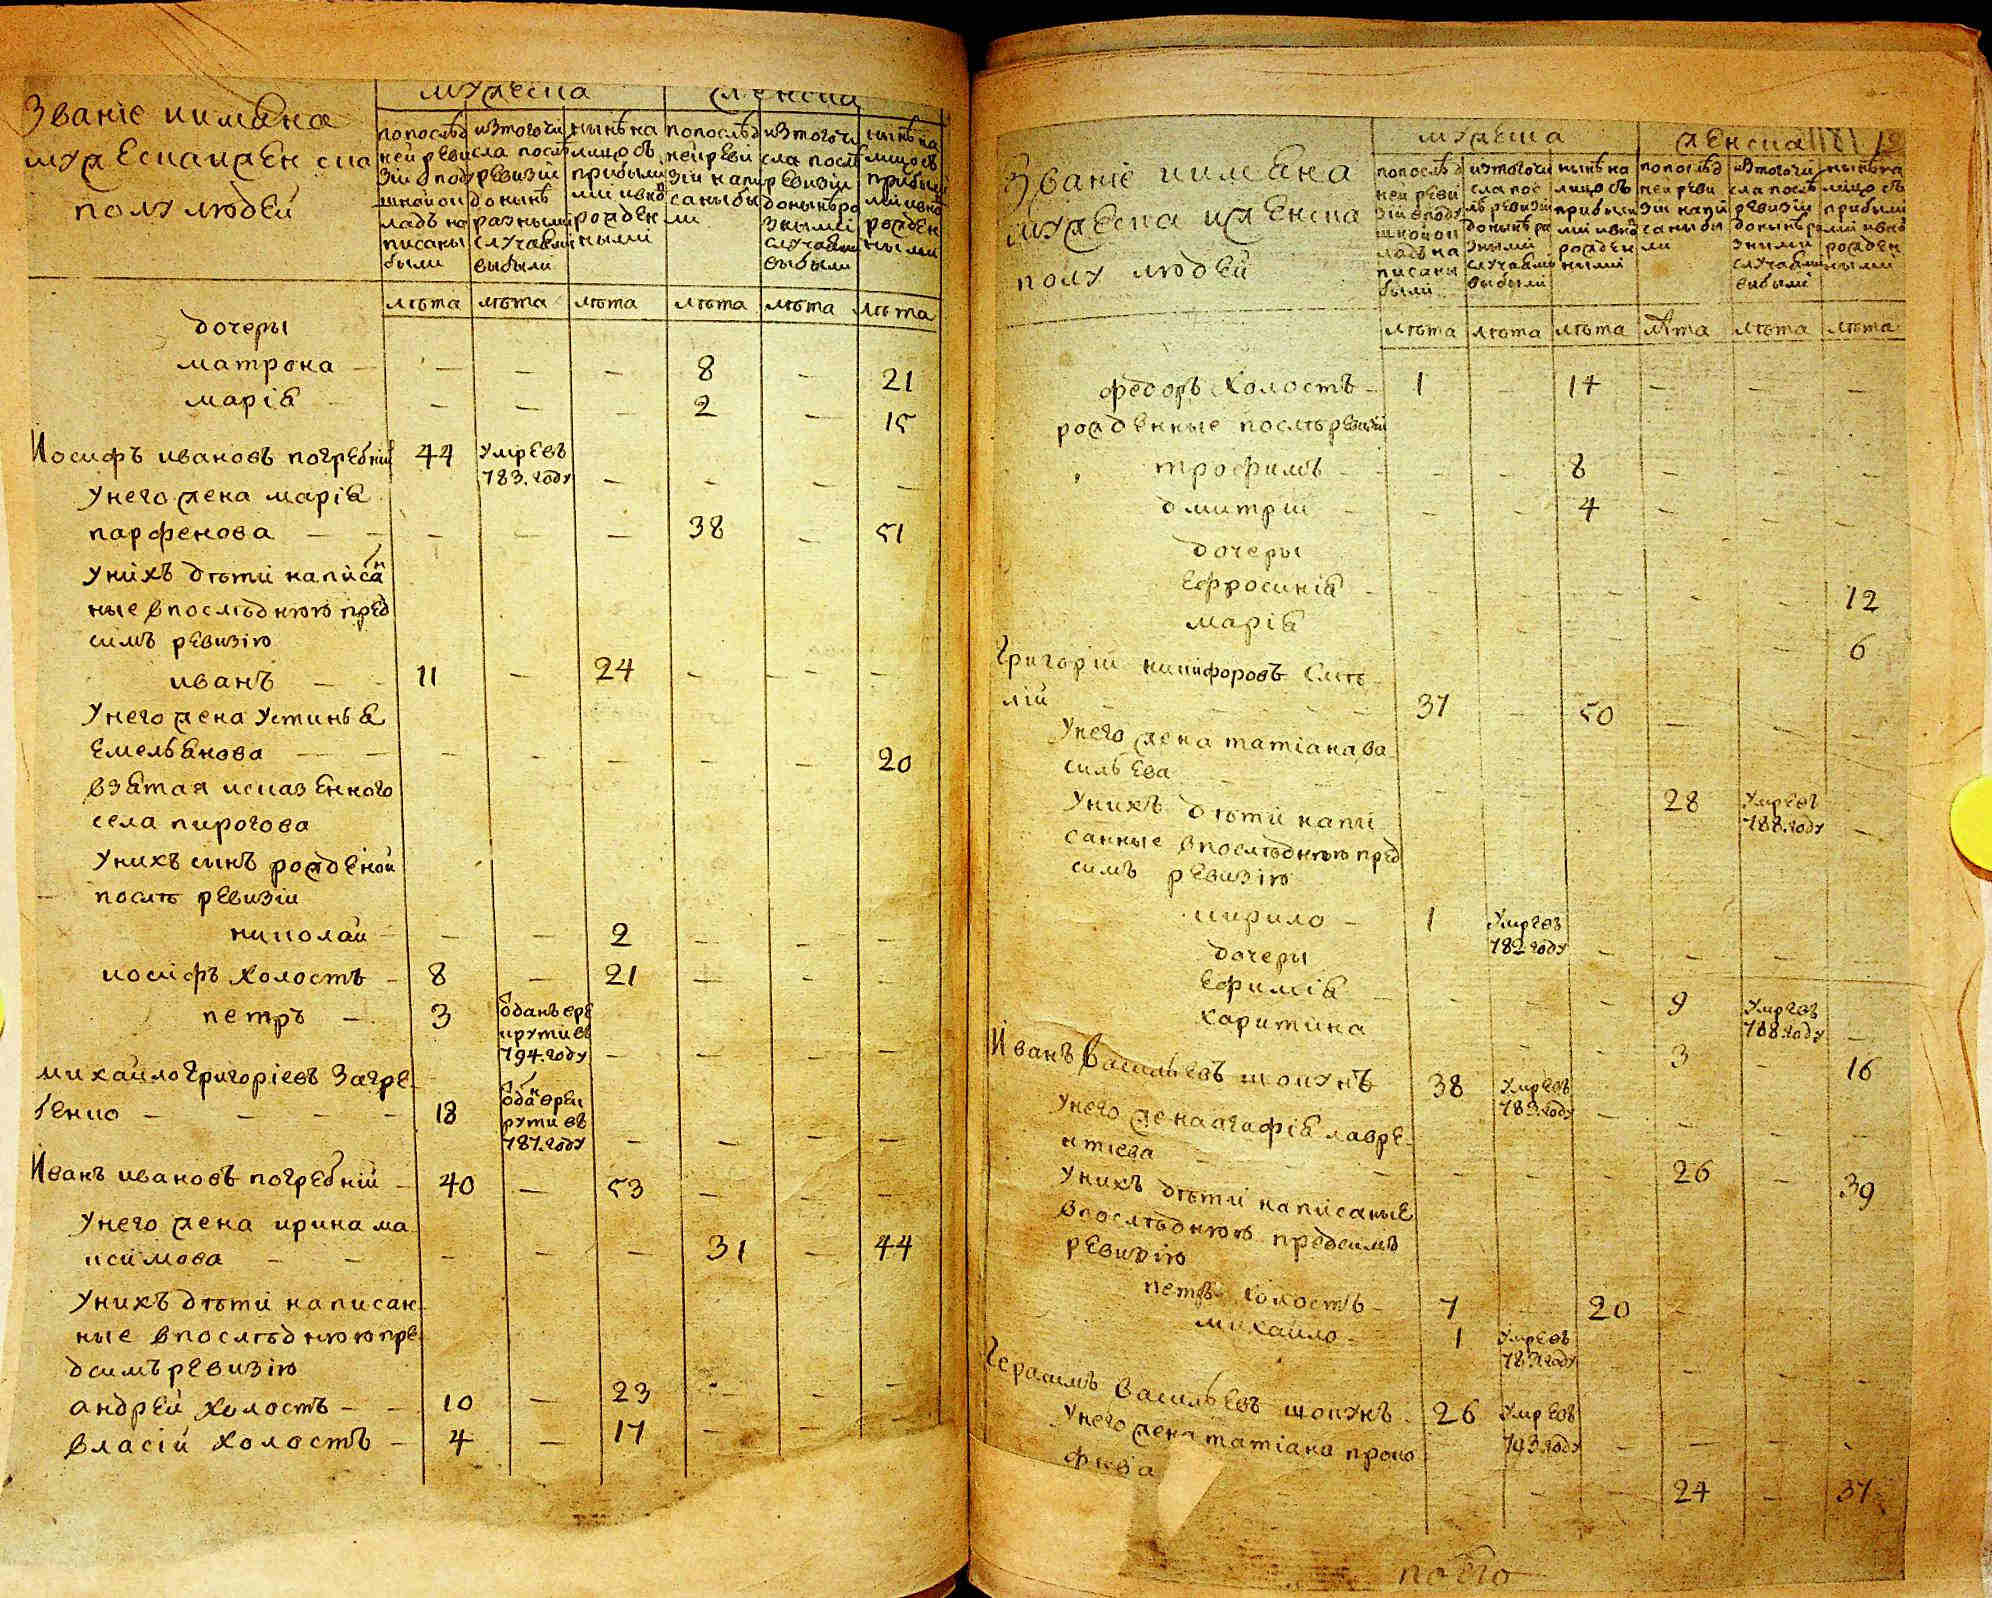 Званіе иимѣна
мужескаижен ска
полу людей
мужеска
женска
попослѣд
ней реви
зіи вподу
шной ок
ладъ на
писаны
были
изтогочи
сла послѣ
ревизіи
донынѣ
разными
случаями
выбыли
нынѣ на
лицо съ
прибылы
ми ивно
рожден
ными
попослѣд
ней реві
зіи напи
саны бы
ли
изтогочи
сла послѣ
ревизіи
донынѣ ра
зными
случаями
выбыли
нынѣ на
лицо съ
прибылы
ми ивно
рожден
ными
лѣта лѣта лѣта лѣта лѣта лѣта
дочеры
матрона — — — — 8 — 21
марія — — — — 2 — 15
Иосифъ ивановъ погребній 44 умревъ
783.году — — — —
Унего жена марія
парфенова — — — — 38 — 51
Унихъ дѣти написан
ные впослѣднюю пред
симъ ревизію
иванъ — 11 — 24 — — —
Унего жена Устинья
Емельянова — — — — — — 20
взятая исказенного
села пирогова
Унихъ синъ рожденой
послѣ ревизіи
николай — — — 2 — — —
иосифъ холостъ — 8 — 21 — —
петръ — 3 одданъ вре
крути въ
794.году — — — —
михайло Григоріевъ Загре
бенко — — — — 18 оддан врек
рути въ
787.году — — — —
Иванъ ивановъ погребній — 40 — 53 — — —
Унего жена ирина ма
ксимова — — — — — 31 — 44
Унихъ дѣти написан
ные впослѣднюю пре
дсимъ ревизію
андрей холостъ — — 10 — 23 — — —
власій холостъ — 4 — 17 — — —
Званіе иимѣна
мужеска иженска
полу людей
мужеска
женска
попослѣд
ней реви
зіи вподу
шной ок
ладъ на
писаны
были
изтогочи
сла пос
лѣ ревизіи
донынѣ ра
зными
случаями
выбыли
нынѣ на
лицо съ
прибылы
ми ивно
рожден
ными
попослѣд
ней реви
зіи напи
саны бы
ли
изтогочи
сла послѣ
ревизіи
донынѣ ра
зными
случаями
выбыли
нынѣ на
лицо съ
прибылы
ми ивно
рожден
ными
лѣта лѣта лѣта лѣта лѣта лѣта
федоръ холостъ — 1 — 14 — — —
рожденные послѣревизіи
трофимъ — — — 8
дмитрій — — — 4 — — —
дочеры
Ефросинія — — — — — — 12
марія — — — — — — 6
Григорій никифоровъ Слѣ
пій — — — 37 — 50 — — —
Унего жена татіана ва
сильева — — — — 28 умревъ
788.году —
Унихъ дѣти напи
санные впослѣднюю пред
симъ ревизію
кирило — 1 умревъ
782.году — — — —
дочеры
Ефимія — — — — 9 умревъ
788.году —
харитина — — — 3 — 16
Иванъ Васильевъ шокунъ 38 умревъ
783.году — — — —
Унего жена агафія лавре
нтіева — — — — 26 — 39
Унихъ дѣти написаные
впослѣднюю предсимъ
ревизію
петръ холостъ — 7 — 20 — — —
михайло — 1 умревъ
783.году — — — —
Герасимъ Васильевъ шокунъ 26 умревъ
793.году — — — —
Унего жена татіана проко
фиева — — — 24 — 37
по его